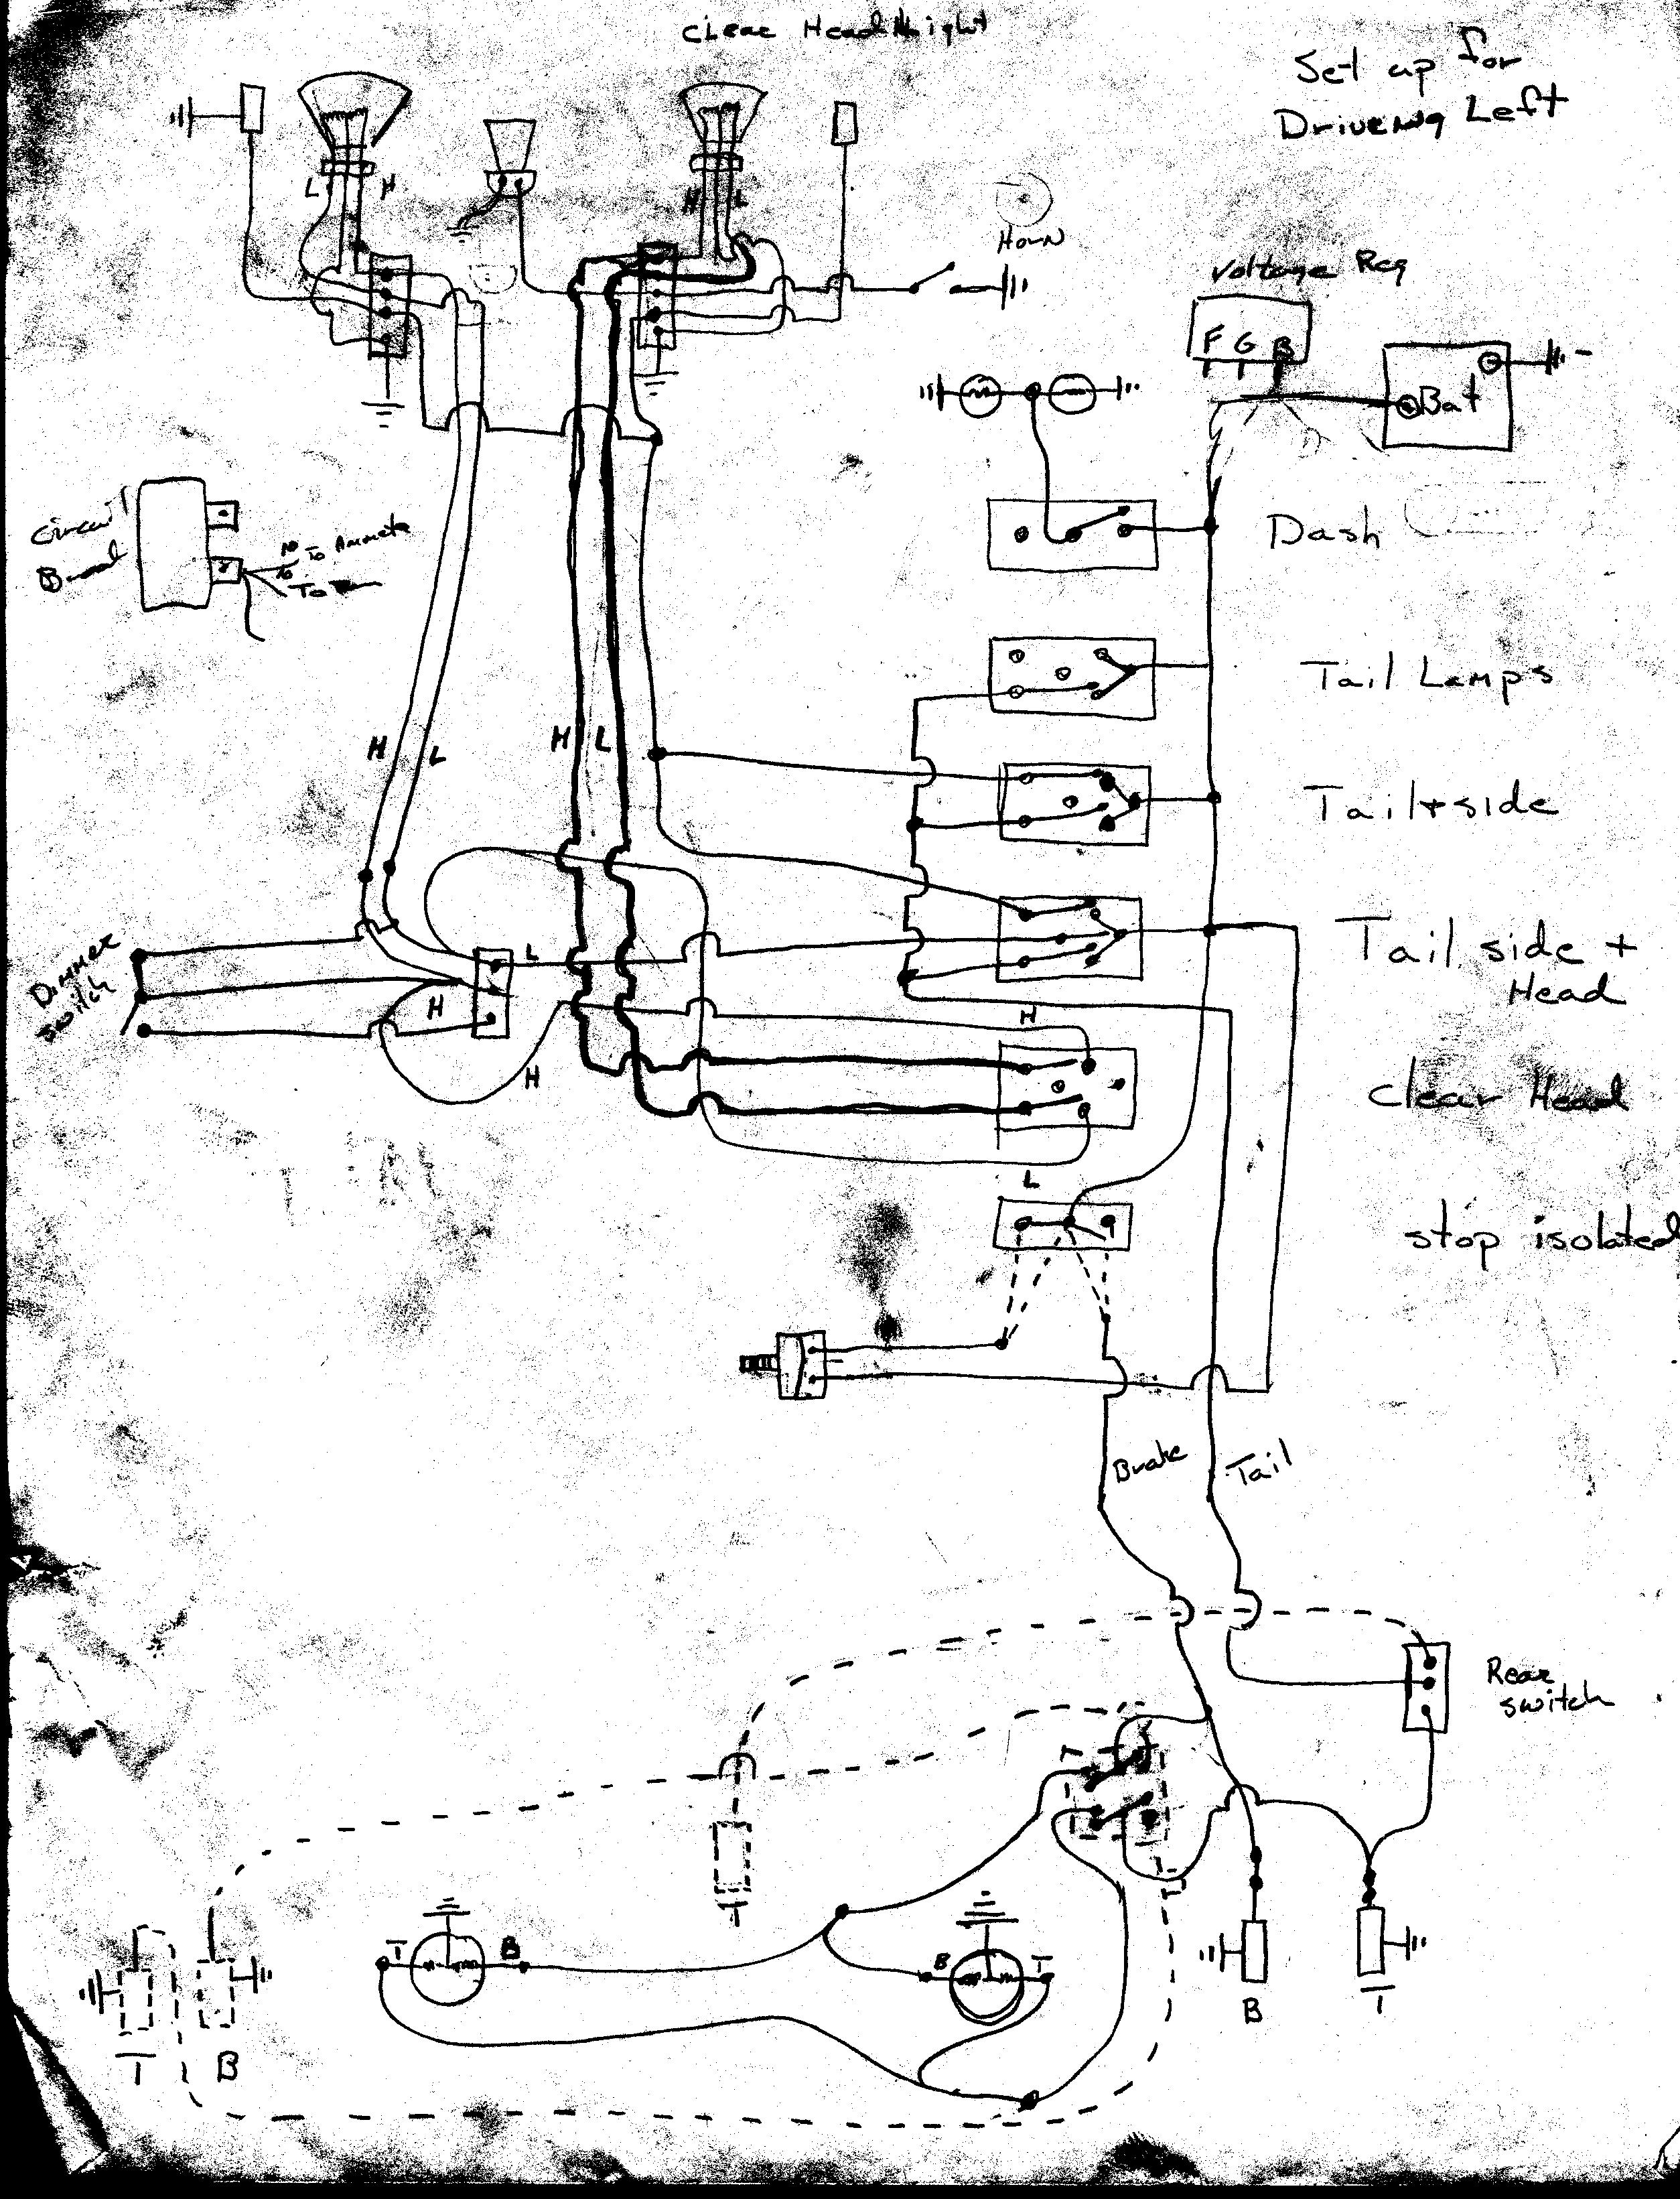 Clear Head Light
Set up for
Driveing Left
L
H
H
L
Horn
Voltage Reg
F G B
Bat
Circuit
To Ammete
To
Dash
Tail Lamps
H
L
H
L
Tail + side
Dimmer
switch
L
H
H
H
Tail side +
Head
Clear Head
L
stop isolated
Brake
Tail
Rear
switch
T
T
B
B
T
B
T
T
B